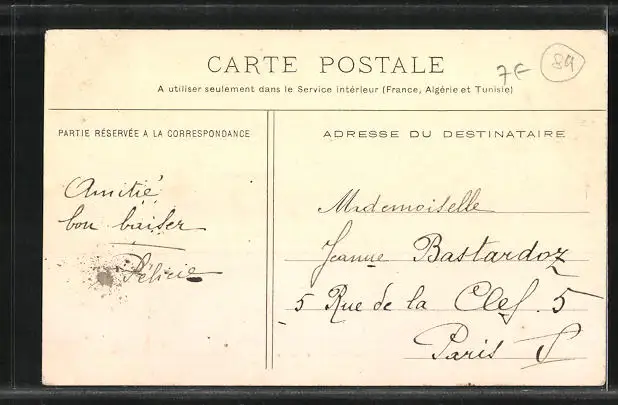 CARTE POSTALE
7E
89
A utiliser seulement dans le Service intérieur (France, Algérie et Tunisie)
PARTIE RÉSERVÉE A LA CORRESPONDANCE
Amitié
bon baiser
Félicie
ADRESSE DU DESTINATAIRE
Mademoiselle
Jeanne Bastardoz
5 Rue de la Clef. 5
Paris